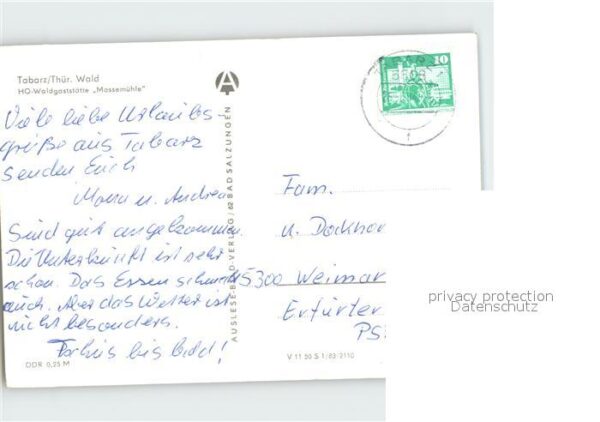 Tabarz/Thür. Wald
HO-Waldgaststätte „Massemühle"
Viele liebe Urlaubs-
grüße aus Tabarz
senden Euch
u. Andrea
Sind gut angekommen.
Die Unterkunft ist sehr
schön. Das Essen schmeckt
auch. Aber das Wetter ist
nicht besonders.
bis bald!
DDR 0,25 M
AUSLESE-BILD-VERLAG/62 BAD SALZUNGEN
V 11 50 S 1/83/2110
10
Fam.
u.
5300 Weimar
Erfurter
privacy protection
Datenschutz